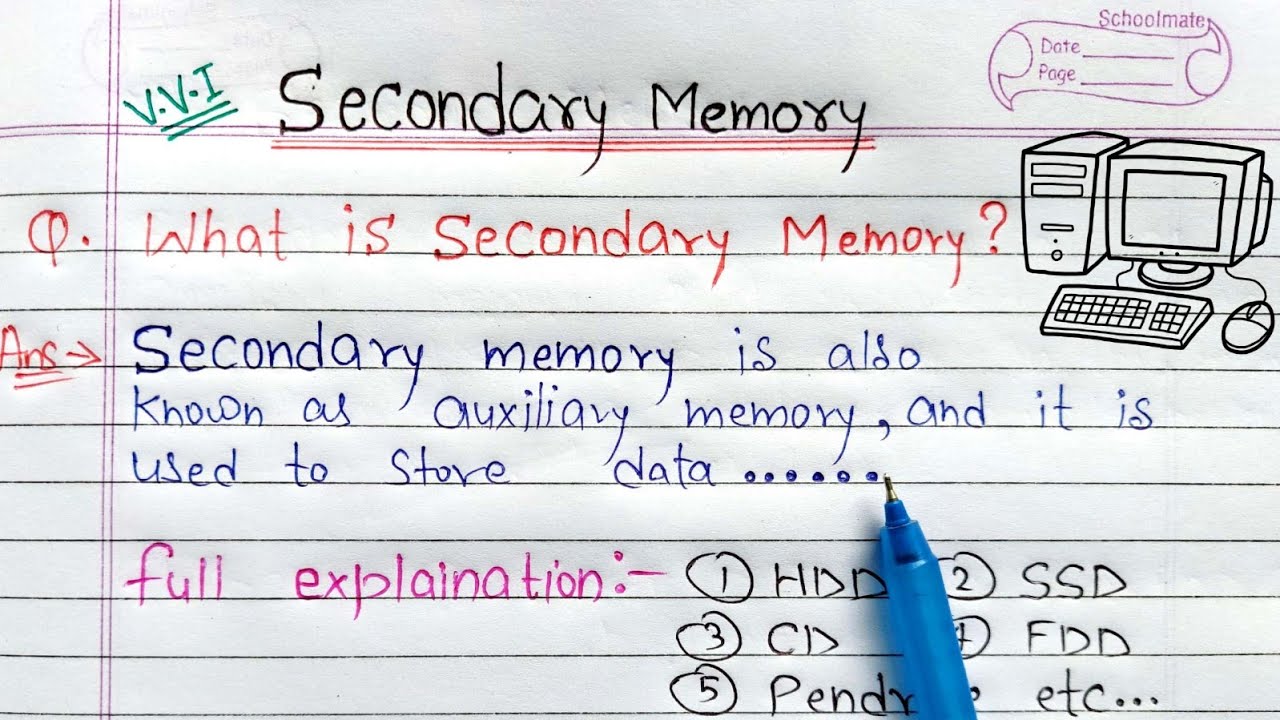 Schoolmate
Date
Page
V.V.I Secondary Memory
Q. What is Secondary Memory?
Ans → Secondary memory is also
known as auxiliary memory, and it is
used to store data .......
full explaination:- ① HDD ② SSD
③ CD FDD
⑤ etc...